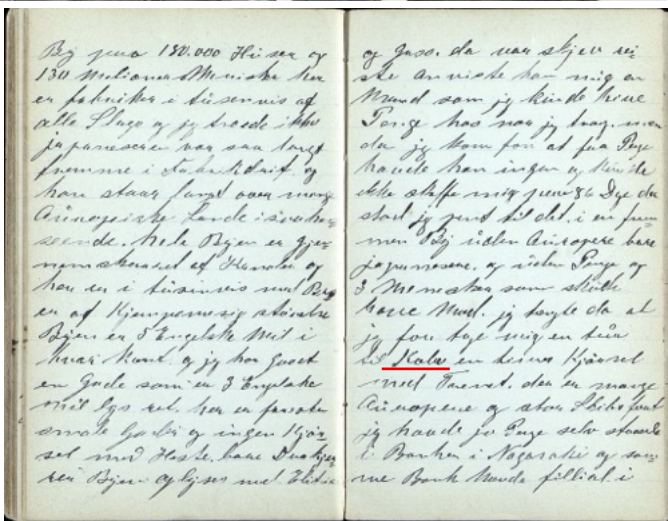 By paa 180.000 Huser og
130 Melioner Meniske her
er fabrikker i tusenvis af
alle Slags og jeg troede ikke
japaneseren var saa langt
fremme i Fabrikdrift, og
han staar langt over mange
Auropeiske Lande i saa hen=
seende. hele Byen er gjen
nemskaaret af Kanaler og
her er i tusinvis med Bro
er af Kjæmpemesig størrelse
Byen er 5 Engelske Mil i
hver Kant. og jeg har Gaaet
en Gade som er 3 Engelske
mil lige ret. her er
smale Gader og ingen Kjør=
sel med Heste. bare
Byen oplyses med
og Gaso. da var
ste anviste han mig en
Mand som jeg kunde have
Penge hos naar jeg trang. men
da jeg kom for at faa Penge
havde han ingen og kunde
ikke skaffe mig Dye da
stod jeg pent til det. i en frem
men By uden Auropere bare
japanesere. og uden Penge og
3 Menesker som skulde
have Mad. jeg tengte da at
jeg for tage mig en tur
til Kobe en times Kjørsel
med Trenet. der er mange
Auropere og stor Skibsfart
jeg havde jo Penge selv staaende
i Banken i Nagasaki og sam=
me Bank havde fillial i